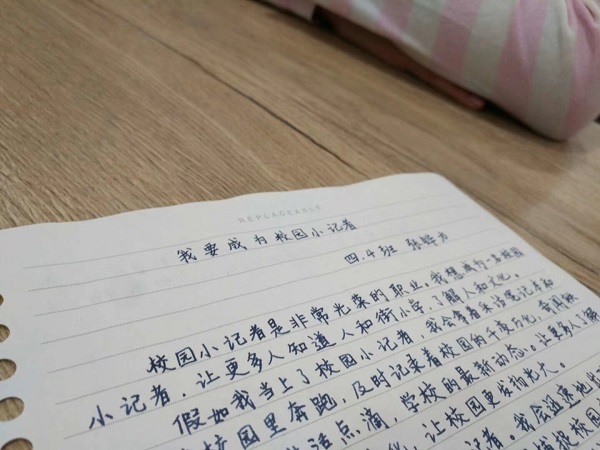 REPLACEABLE
我要成为校园小记者
四.4班 张
校园小记者是非常光荣的职业。我想成为一名校园
小记者，让更多人知道人和街小学，了解人和文化。
假如我当上了校园小记者，我会拿着采访笔记本和
校园里奔跑，及时记录着校园的千变万化，
生活点滴，学校的最新动态。让更多人了解
让校园更发扬光大。
记者。我会迅速地
把校园